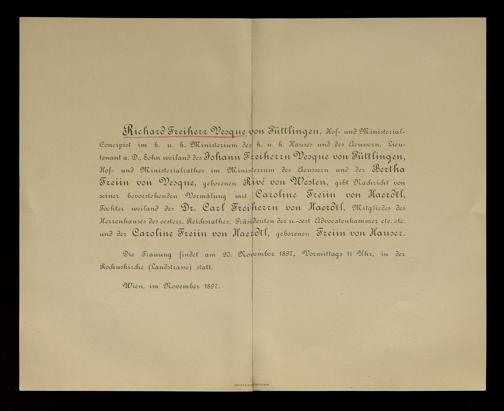 Richard Freiherr Vesque von Püttlingen, Hof- und Ministerial-
Concipist im k. u. k. Ministerium des k. u. k. Hauses und des Aeussern, Lieu-
tenant a. D., Sohn weiland des Johann Freiherrn Vesque von Püttlingen,
Hof- und Ministerialrathes im Ministerium des Aeussern und der Bertha
Freiin von Vesque, geborenen Rivé von Westen, gibt Nachricht von
seiner bevorstehenden Vermälung mit Caroline Freiin von Haerdtl,
Tochter weiland des Dr. Carl Freiherrn von Haerdtl, Mitgliedes des
Herrenhauses des oesterr. Reichsrathes, Präsidenten der n.-oest. Advocatenkammer etc. etc.
und der Caroline Freiin von Haerdtl, geborenen Freiin von Hauser.
Die Trauung findet am 20. November 1897, Vormittags 11 Uhr, in der
Rochuskirche (Landstrasse) statt.
Wien, im November 1897.